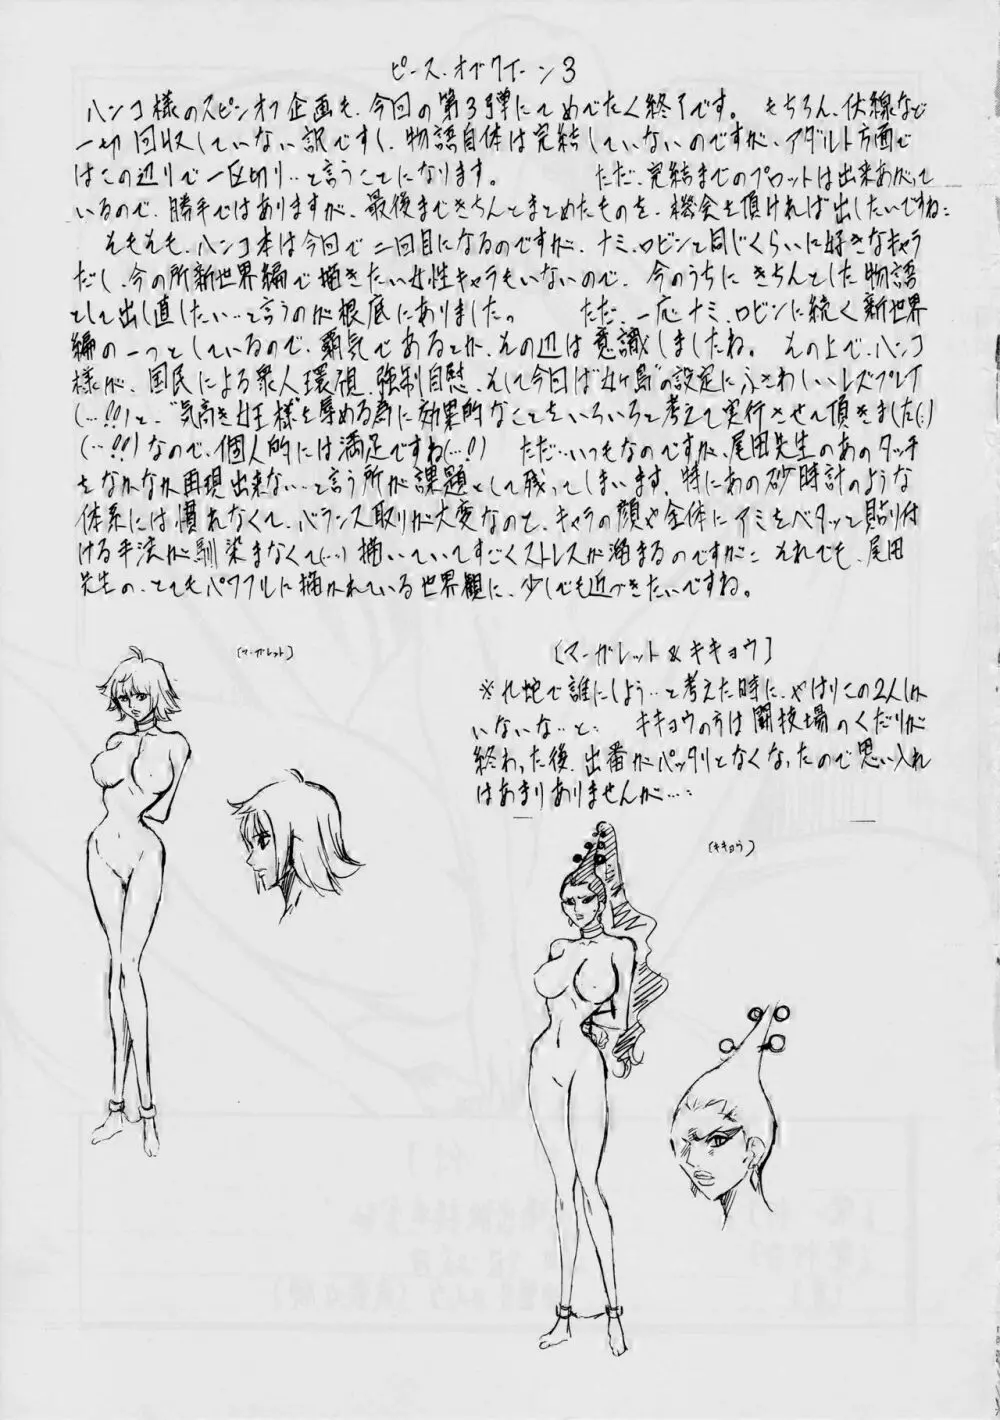 ピース・オブクイーン3
ハンコ様のスピンオフ企画も、今回の第3弾にてめでたく終了です。 もちろん、伏線など
一切回収していない訳ですし、物語自体は完結していないのですが、アダルト方面で
はこの辺りで一区切り…と言うことになります。 ただ、完結までのプロットは出来あがって
いるので、勝手ではありますが、最後まできちんとまとめたものを、機会を頂ければ出したいですね:
そもそも、ハンコ本は今回で二回目になるのですが、ナミ、ロビンと同じくらいに好きなキャラ
だし、今の所新世界編で描きたい女性キャラもいないので、今のうちにきちんとした物語
として出し直したい…と言うのが根底にありました。 ただ、一応ナミ、ロビンに続く新世界
編の一つとしているので、覇気であるとか、その辺は意識しましたね。 その上で、ハンコ
様が、国民による衆人環視、強制自慰、そして今回は"女ヶ島"の設定にふさわしいレズプレイ
(…!!)と、"気高き女王様"を辱める為に効果的なことをいろいろと考えて実行させて頂きました(:)
(…!!)なので、個人的には満足ですね(…!) ただ…いつもなのですが、尾田先生のあのタッチ
をなかなか再現出来ない…と言う所が課題として残ってしまいます。特にあの砂時計のような
体系には慣れなくて、バランス取りが大変なのと、キャラの顔や全体にアミをベタッと貼り付
ける手法が馴染まなくて(…)描いていてすごくストレスが溜まるのですが: それでも、尾田
先生の、とてもパワフルに描かれている世界観に、少しでも近づきたいですね。
[マーガレット]
[マーガレット&キキョウ]
※九蛇で誰にしよう…と考えた時に、やはりこの2人しか
いないな…と: キキョウの方は闘技場のくだりが
終わった後、出番がパッタリとなくなったので思い入れ
はあまりありませんが…:
[キキョウ]